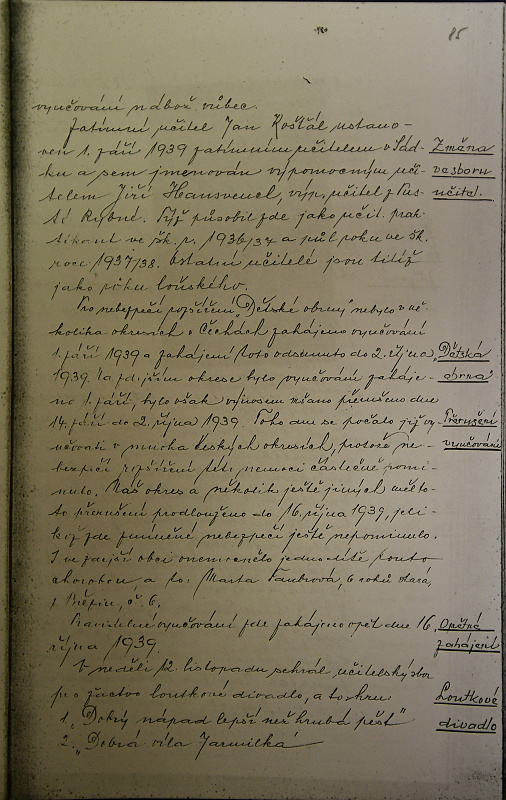 85
vyučování nábož. vůbec.
Zatímní učitel Jan Košťál ustano-
ven 1. září 1939 zatímním učitelem v Sád-
ku a sem jmenován výpomocným uči-
telem Jiří Hansvencl, výp. učitel z Pus-
té Rybné. Týž působil zde jako učit. prak-
tikant ve šk. r. 1936/37 a půl roku ve šk.
roce 1937/38. Ostatní učitelé jsou titíž
jako roku loňského.
Změna
ve sboru
učitel.
Pro nebezpečí rozšíření „Dětské obrny" nebylo v ně-
kolika okresích v Čechách zahájeno vyučování
1. září 1939 a zahájení toto odsunuto do 2. října
1939. Na zdejším okrese bylo vyučování zaháje-
no 1. září, bylo však výnosem přerušeno dne
14. září do 2. října 1939. Toho dne se počalo již vy-
učovati v mnoha českých okresích, protože ne-
bezpečí rozšíření této nemoci částečně pomi-
nulo. Náš okres a několik ještě jiných mělo to-
to přerušení prodlouženo do 16. října 1939, jeli-
kož zde zmíněné nebezpečí ještě nepominulo.
I ve zdejší obci onemocnělo jedno dítě touto
chorobou, a to: Marta Taubrová, 6 roků stará,
z Březin, č. 6.
Dětská
obrna
Přerušení
vyučování
Pravidelné vyučování zde zahájeno opět dne 16.
října 1939.
Opětné
zahájení
V neděli 12. listopadu sehrál učitelský sbor
pro žactvo loutkové divadlo, a to hru:
1. „Dobrý nápad lepší než hrubá pěst"
2. „Dobrá víla Jarmilka"
Loutkové
divadlo